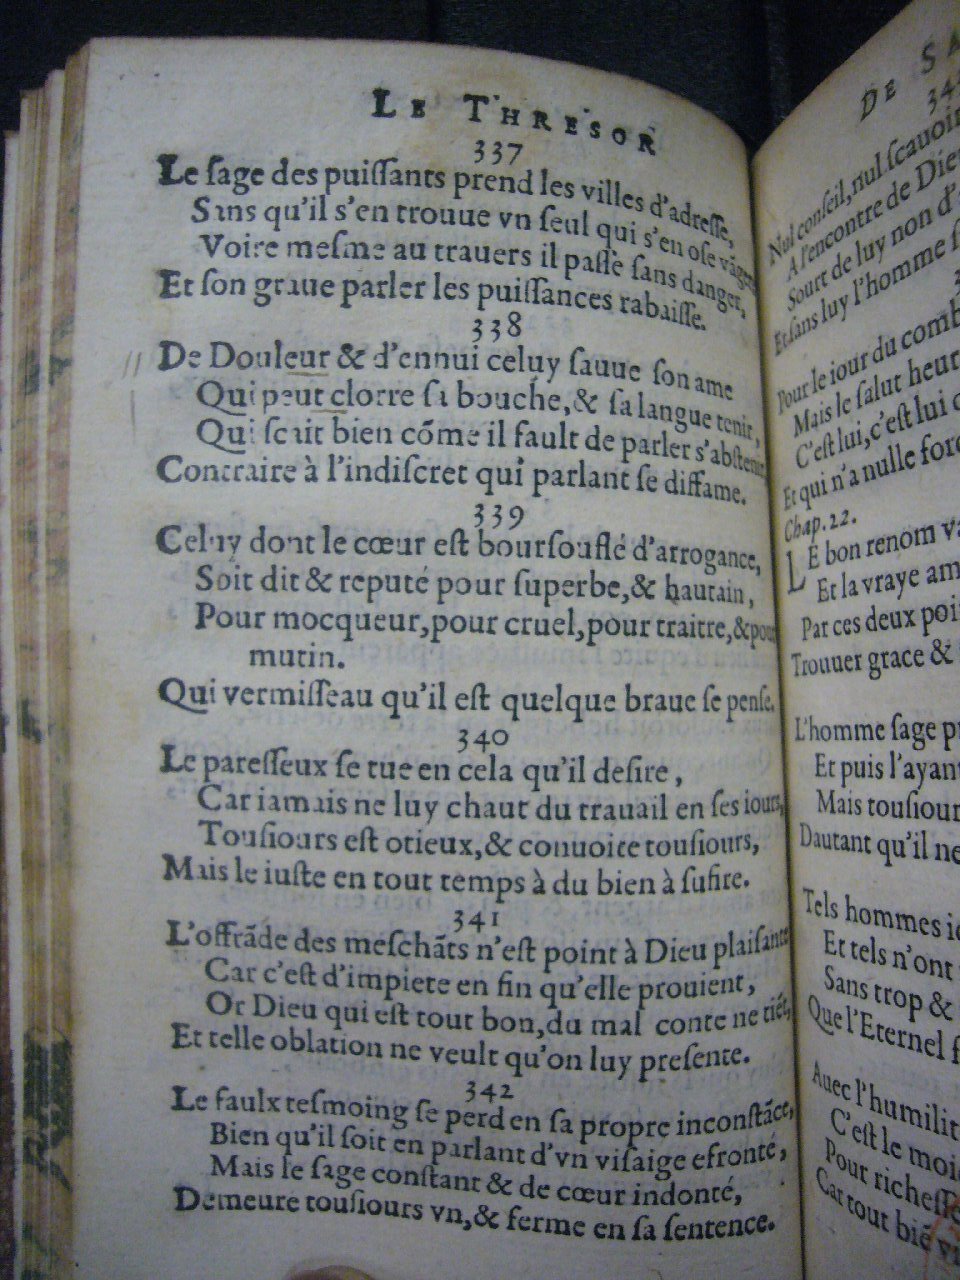 LE THRESOR
337
Le ſage des puiſſants prend les villes d'adreſſe,
Sans qu'il s'en trouue vn ſeul qui s'en oſe vãger,
Voire meſme au trauers il paſſe ſans danger,
Et ſon graue parler les puiſſances rabaiſſe.
338
De Douleur & d'ennui celuy ſauue ſon ame
Qui peut clorre ſa bouche, & ſa langue tenir,
Qui ſcait bien cõme il fault de parler s'abſtenir
Contraire à l'indiſcret qui parlant ſe diffame.
339
Celuy dont le cœur eſt bourſouflé d'arrogance,
Soit dit & reputé pour ſuperbe, & hautain,
Pour mocqueur, pour cruel, pour traitre, & pour
mutin.
Qui vermiſſeau qu'il eſt quelque braue ſe penſe.
340
Le pareſſeux ſe tue en cela qu'il deſire,
Car iamais ne luy chaut du trauail en ſes iours,
Touſiours eſt otieux, & conuoite touſiours,
Mais le iuſte en tout temps à du bien à ſufire.
341
L'offrãde des meſchãts n'eſt point à Dieu plaiſante
Car c'eſt d'impiete en fin qu'elle prouient,
Or Dieu qui eſt tout bon, du mal conte ne tiẽt,
Et telle oblation ne veult qu'on luy preſente.
342
Le faulx teſmoing ſe perd en ſa propre inconſtãce,
Bien qu'il ſoit en parlant d'vn viſaige efronté,
Mais le ſage conſtant & de cœur indonté,
Demeure touſiours vn, & ferme en ſa ſentence.
DE
Nul conſeil, nul ſcauoir
A l'encontre de Dieu
Sourt de luy non d'
Et ſans luy l'homme
Pour le iour du
Mais le ſalut
C'eſt lui, c'eſt lui
Et qui n'a nulle
Chap. 22.
LE bon renom
Et la vraye
Par ces deux
Trouuer grace &
L'homme ſage
Et puis
Mais
Dautant qu'il ne
Tels hommes
Et tels n'ont
Sans trop &
Que l'Eternel
Auec
C'eſt le
Pour
Car tout biẽ